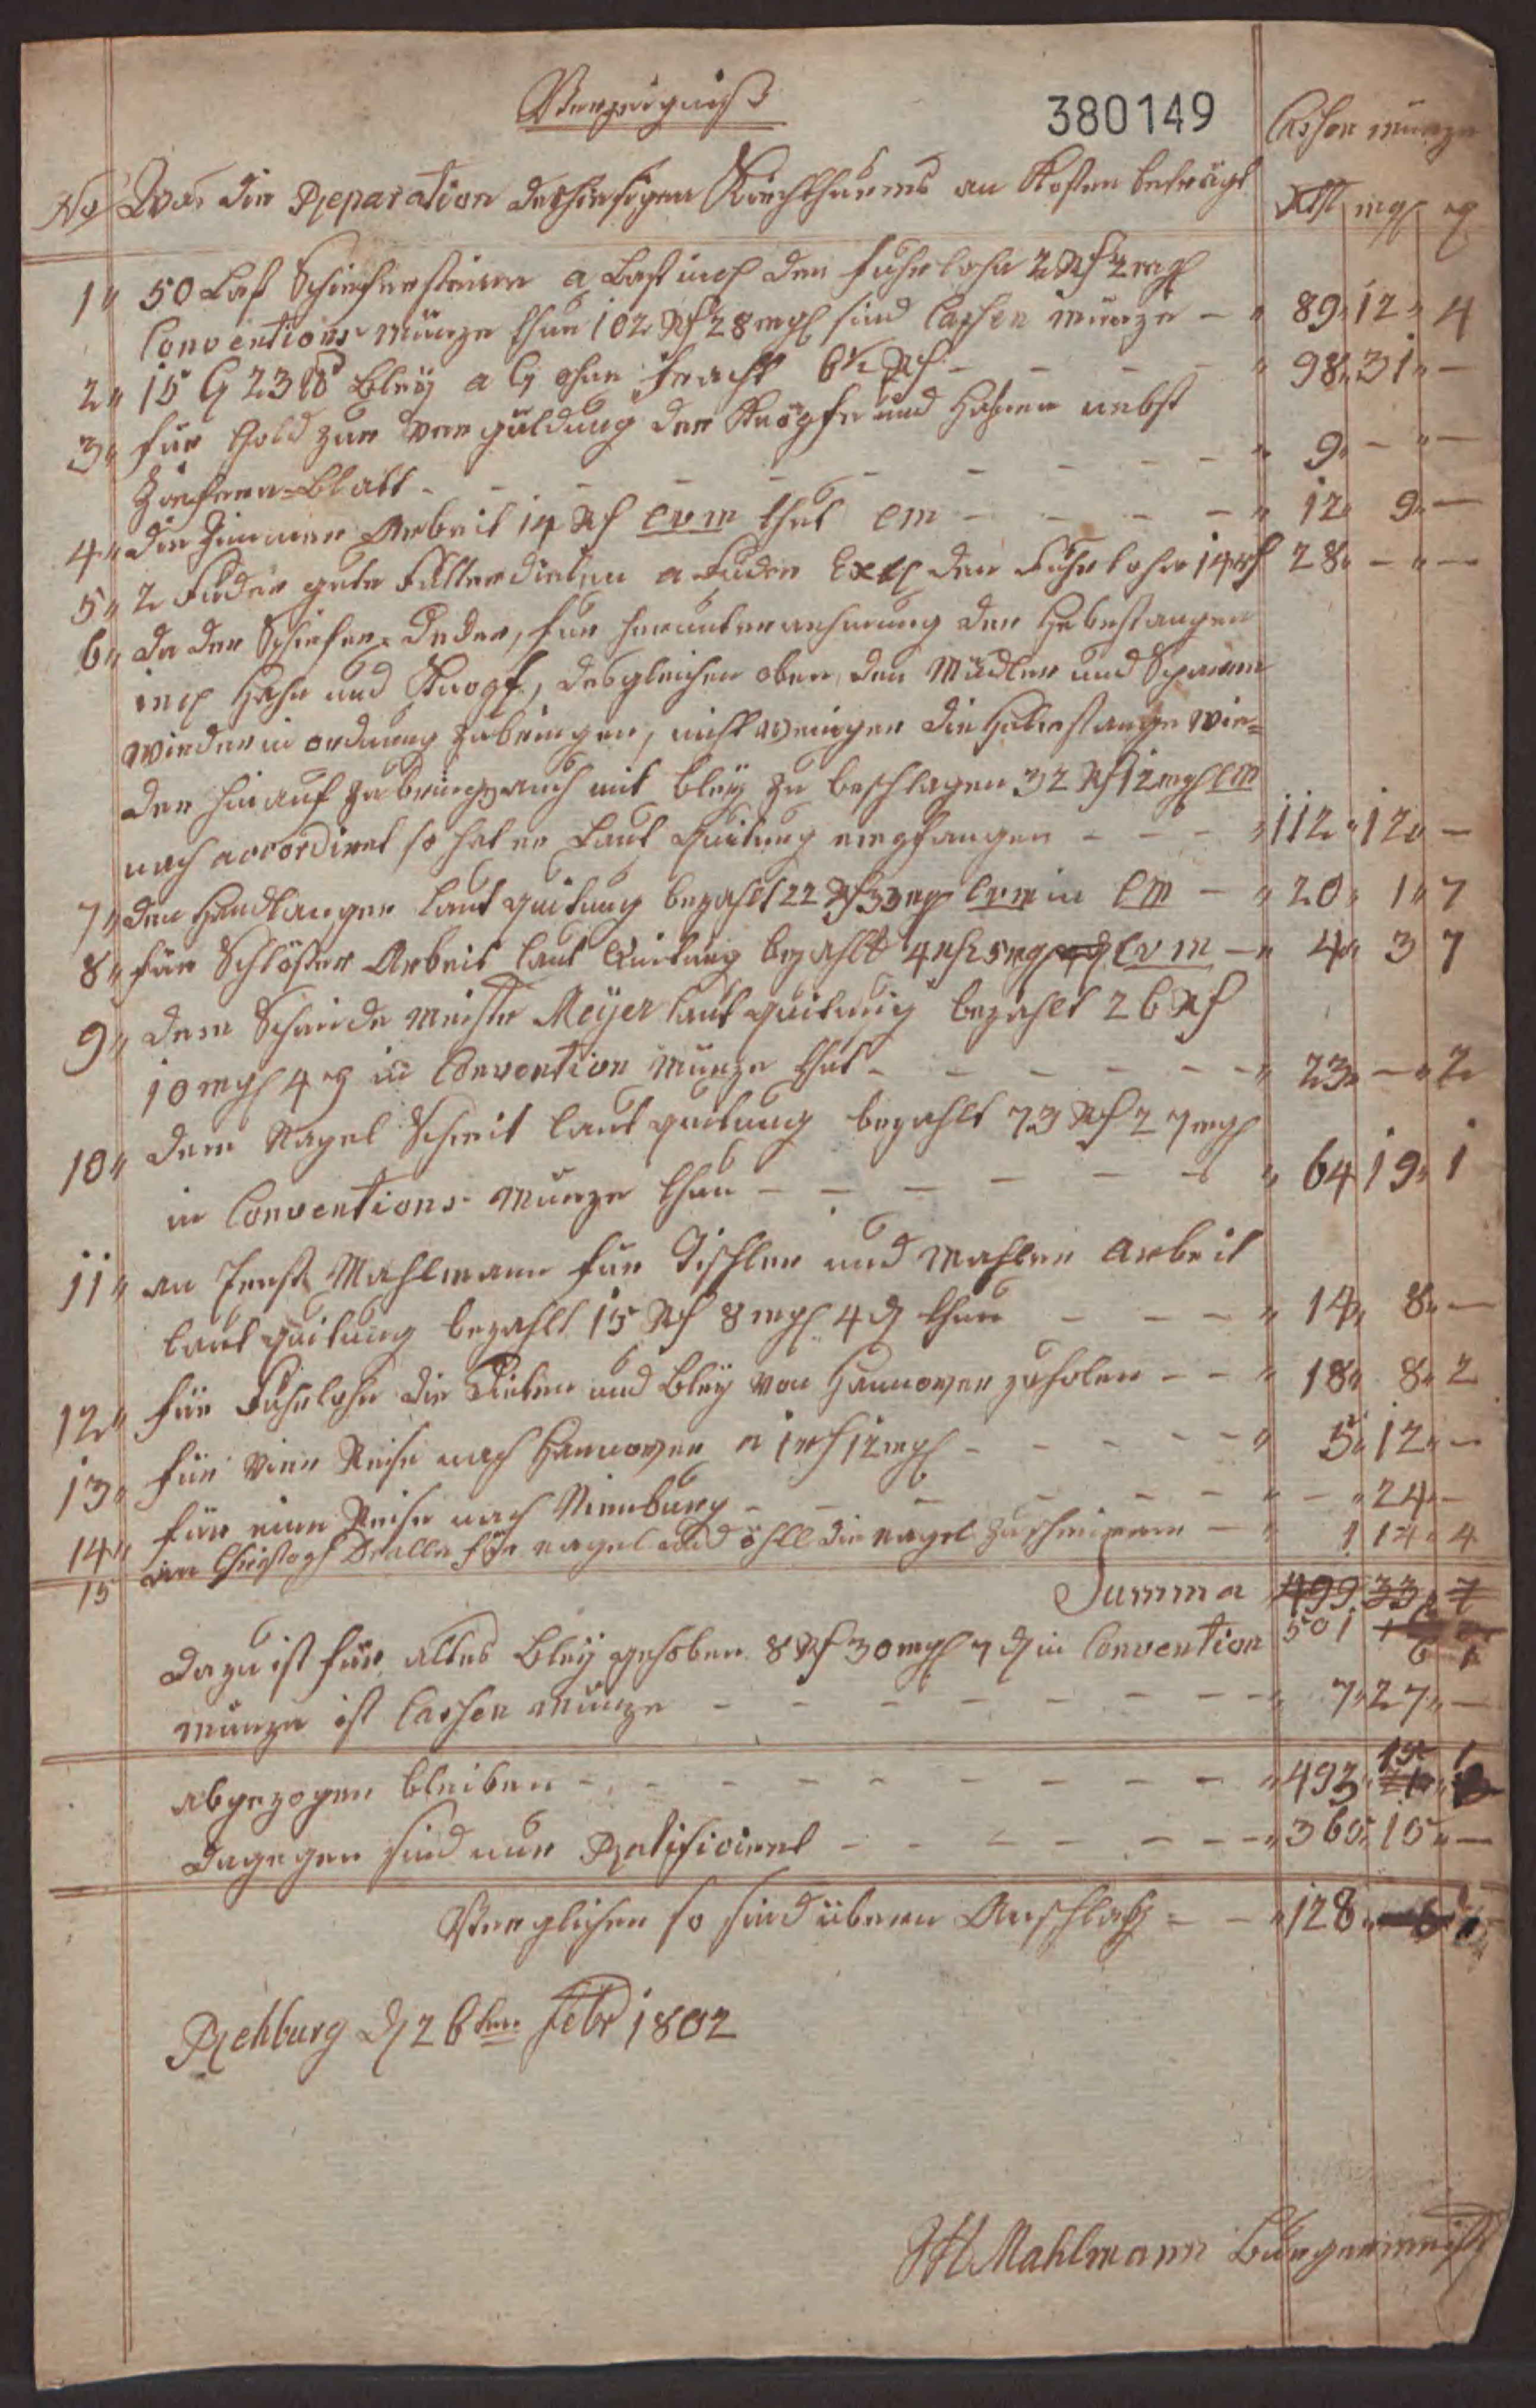 Verzeigniß
380149
Cassen münze
No Was die Reparation des hiesigen Kirchthurms an Kosten beträgt
Rthl mgl ₰
1" 50 Last Schiefersteine a Last incl den fuhrlohn 2 Rf 2 mgl
Conventions münze thun 102 Rf 28 mgl sind Cassen münze — " 89" 12" 4
2" 15 Bley a ohne fracht 6½ Rf — " 98" 31" —
3" für Gold zur verguldung der Knöpfe und Hahnen nebst
Zieferen-Blatt — " 9" — " —
4" die Zimmer Arbeit 14 Rf Cvm thut CM — " 12" 9" —
5" 2 Fuder gute Futterdielen a Fuder Excl den Fuhrlohn 14 rf 28" — " —
6" da der Schiefer-Decker, für herunternehmung der Hebestangen
incl Hahn und Knopf, desgleichen oben, den Mückler und Sparren
wieder in ordnung zubringen, nicht weniger die Hebestange wie=
der hinauf zubringen auch mit bley zu beschlagen 32 Rf 12 mgl CM
nach accordiret so hat er Laut Quitung empfangen — " 112" 12" —
7" den Handlanger laut quitung bezahlt 22 Rf 33 mgl Cvm in CM — " 20" 1" 7
8" für Schlößer Arbeit laut Quitung bezahlt 4 rf 25 mgl Cvm — " 4" 3 7
9" dem Schmide Meister Meyer laut quitung bezahlt 26 Rf
10 mgl 4 ₰ in Convention Münze thut — " 23" — " 2
10" dem Nagel Schmit laut quitung bezahlt 73 Rf 27 mgl
in Conventions Münze thun — " 64" 19" 1
11" an Ernst Mahlmann für Tischler und Mahler Arbeit
laut quitung bezahlt 15 Rf 8 mgl 4 ₰ thun — " 14" 8" —
12" für Fuhrlohn die Dielen und Bley von Hannover zuholen — " 18" 8" 2
13" für vier Reise nach Hannover a 1 rf 12 mgl — " 5" 12" —
14" für eine Reise nach Nienburg — " — " 24" —
15 an Christoph Dralle für nagel und öhll die nagel zu schmieren — " 1 14" 4
Summa 499 33" 7
501 6 1
dazu ist für altes Bley gehoben 8 Rf 30 mgl 7 ₰ in Convention
münze ist Cassen Münze — " 7" 27" —
abgezogen bleiben — " 493" 15 1
dagegen sind nur Ratificiret — " 365" 15" —
Verglichen so sind übern Anschlag — " 128"
Rehburg d 26ten Febr 1802
Mahlmann Bürgermeist